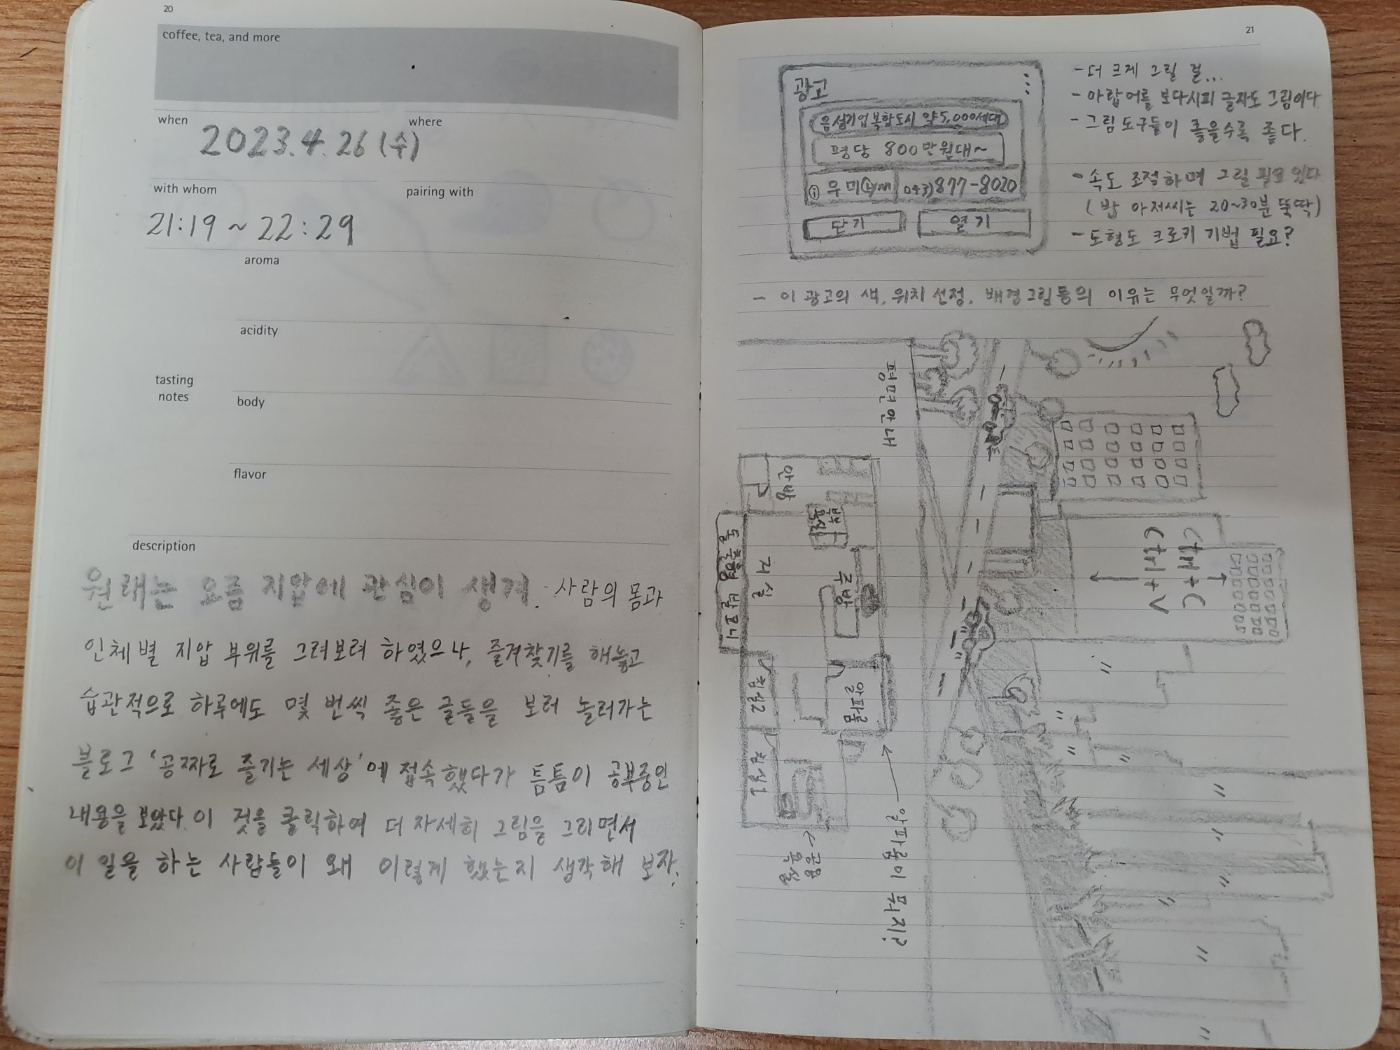 20
coffee, tea, and more
when
where
2023.4.26 (수)
with whom
pairing with
21:19 ~ 22:29
aroma
acidity
tasting
notes
body
flavor
description
원래는 요즘 지압에 관심이 생겨. 사람의 몸과
인체별 지압 부위를 그려보려 하였으나, 즐겨찾기를 해놓고
습관적으로 하루에도 몇 번씩 좋은 글들을 보러 놀러가는
블로그 '공짜로 즐기는 세상'에 접속했다가 틈틈이 공부중인
내용을 보았다. 이 것을 클릭하여 더 자세히 그림을 그리면서
이 일을 하는 사람들이 왜 이렇게 했는지 생각해 보자.
21
광고
음성기업복합도시 약5,000세대
평당 800만원대~
우미 043)877-8020
닫기
열기
- 더 크게 그릴 걸...
- 아랍어를 보다시피 글자도 그림이다
- 그림도구들이 좋을수록 좋다.
- 속도 조절하며 그릴 필요 있다
(밥 아저씨는 20~30분 뚝딱)
- 도형도 크로키 기법 필요?
- 이 광고의 색, 위치 선정, 배경그림등의 이유는 무엇일까?
평면안내
안방
거실
주방
발코니
알파룸
침실2
침실1
공용
욕실
알파룸이 뭐지?
Ctrl+C
Ctrl+V